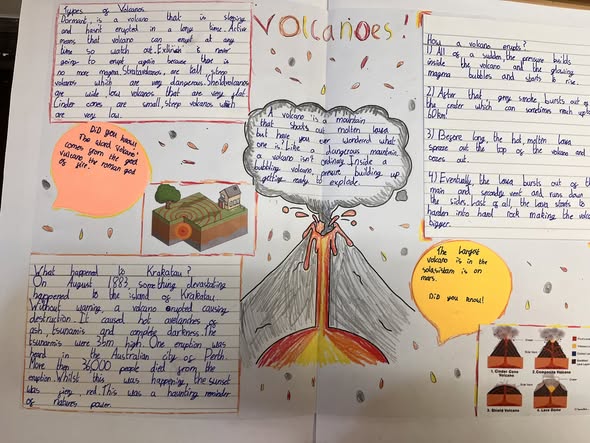 VOLCANOES!
Types of Volcanos
Dormant, is a volcano that is sleeping
and hasnt erupted in a long time. Active
means that volcano can erupt at any
time so watch out. Extinct is never
going to erupt again because there is
no more magma. Stratovolcanos, are tall, steep
volcanos which are very dangerous. Sheildvolcanos
are wide, low volcanos that are very flat.
Cinder cones are small, steep volcanos which
are very low.
Did you know!
The word Volcano
comes from the god
vulcano, the roman god
of fire.
What happened to Krakatau?
On August 1883, something devastating
happened to the island of Krakatau
Without warning, a volcano erupted causing
destruction. It caused hot avalanches of
ash, tsunamis and complete darkness. The
tsunamis were 35m high. One eruption was
heard in the Australian city of Perth.
More than 36000 people died from the
eruption. Whilst this was happening, the sunset
was fiery red. This was a haunting reminder
of natures power.
A volcano is a mountain
that shoots out molten lava
but have you ever wondered what
one is? Like a dangerous mountain
a volcano isn't ordinary. Inside a
bubbling volcano, presure building up
getting ready to explode.
How a volcano erupts?
1) All of a sudden, the pressure builds
inside the volcano and the glowing
magma bubbles and starts to rise.
2) After that grey smoke bursts out of
the crater which can sometimes reach
60km!
3) Before long, the hot, molten lava
out the top of the volcano and
oozes out.
4) Eventually, the lava bursts out of the
main and secondry vent and runs down
the sides. Last of all, the lava starts to
harden into hard rock making the
bigger.
The Largest
volcano is in the
solarsistem is on
mars.
Did you know!
1. Cinder Cone
Volcano
2. Composite Volcano
3. Shield Volcano
4. Lava Dome